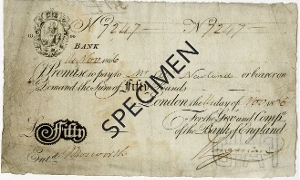 No 7247 No 7247
BANK
1806 Nov 1806
I Promise to pay to Mr. Newland or bearer on
Demand the Sum of Fifty Pounds
London the day of Nov 1806
For the Gov.r and Comp.a
of the Bank of England
£ Fifty
Ent.d
SPECIMEN